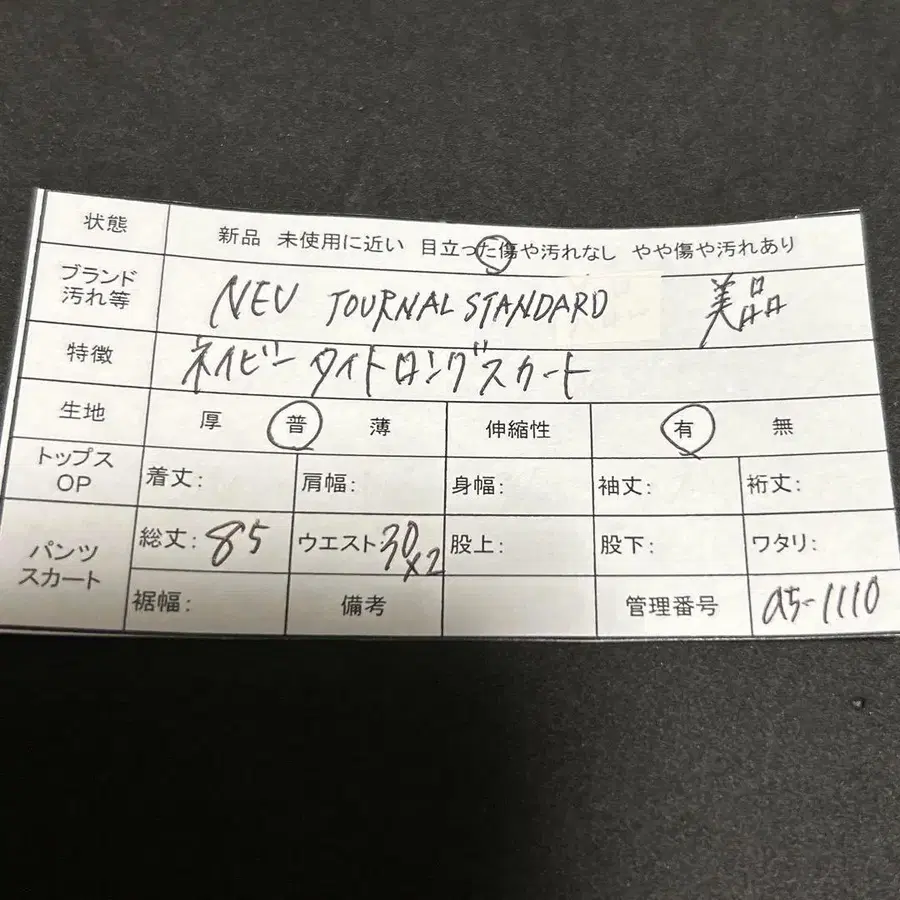 状態 新品 未使用に近い 目立った傷や汚れなし やや傷や汚れあり
ブランド
汚れ等 NEU JOURNAL STANDARD 美品
特徴 ネイビー タイトロングスカート
生地 厚 普 薄 伸縮性 有 無
トップス
OP 着丈: 肩幅: 身幅: 袖丈: 裄丈:
パンツ
スカート 総丈: 85 ウエスト 30×2 股上: 股下: ワタリ:
裾幅: 備考 管理番号 a5-1110